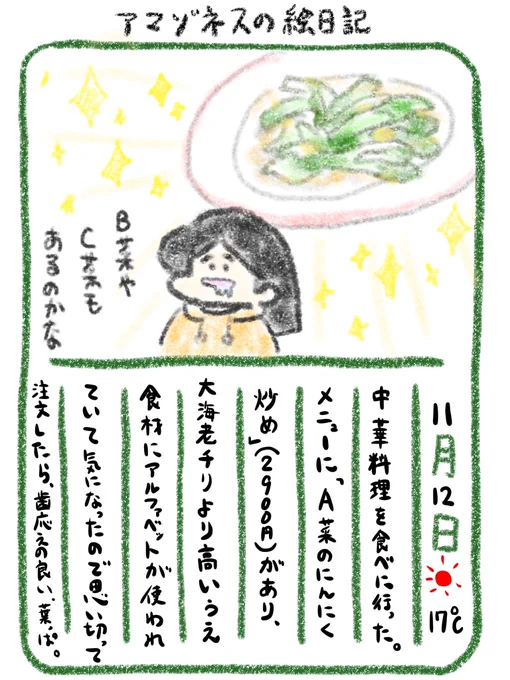 アマゾネスの絵日記
B菜や
C菜も
あるのかな
11月12日 17℃
中華料理を食べに行った。
メニューに、「A菜のにんにく
炒め」(2900円)があり、
大海老チリより高いうえ
食材にアルファベットが使われ
ていて気になったので思い切って
注文したら、歯応えの良い、葉っぱ。